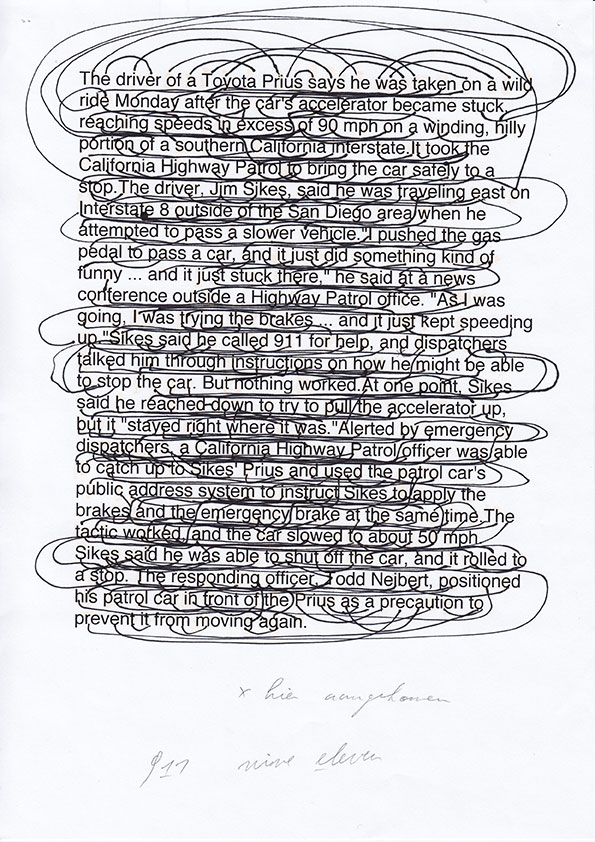 The driver of a Toyota Prius says he was taken on a wild
ride Monday after the car's accelerator became stuck,
reaching speeds in excess of 90 mph on a winding, hilly
portion of a southern California interstate.It took the
California Highway Patrol to bring the car safely to a
stop.The driver, Jim Sikes, said he was traveling east on
Interstate 8 outside of the San Diego area when he
attempted to pass a slower vehicle."I pushed the gas
pedal to pass a car, and it just did something kind of
funny ... and it just stuck there," he said at a news
conference outside a Highway Patrol office. "As I was
going, I was trying the brakes ... and it just kept speeding
up."Sikes said he called 911 for help, and dispatchers
talked him through instructions on how he might be able
to stop the car. But nothing worked.At one point, Sikes
said he reached down to try to pull the accelerator up,
but it "stayed right where it was."Alerted by emergency
dispatchers, a California Highway Patrol officer was able
to catch up to Sikes' Prius and used the patrol car's
public address system to instruct Sikes to apply the
brakes and the emergency brake at the same time.The
tactic worked, and the car slowed to about 50 mph.
Sikes said he was able to shut off the car, and it rolled to
a stop. The responding officer, Todd Nejbert, positioned
his patrol car in front of the Prius as a precaution to
prevent it from moving again.
x hier aangekomen
911 nine eleven